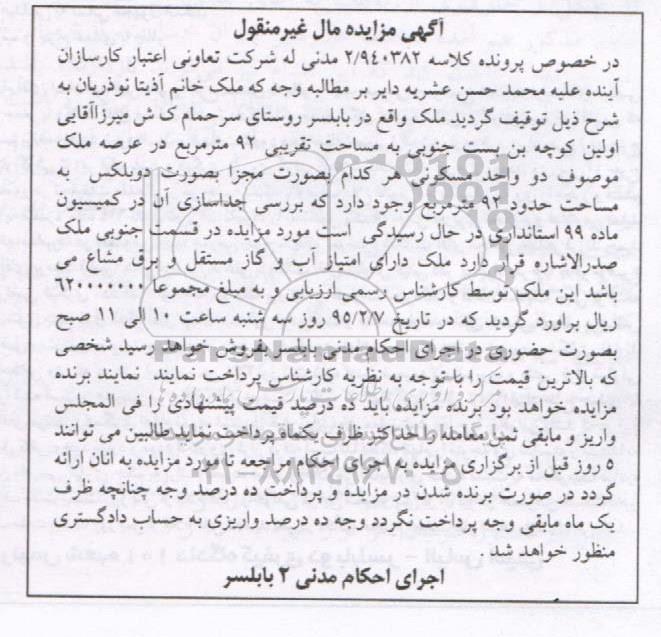 آگهی مزایده مال غیرمنقول
در خصوص پرونده کلاسه ۲/۹۴۰۳۸۲ مدنی له شرکت تعاونی اعتبار کارسازان
آینده علیه محمد حسن عشریه دایر بر مطالبه وجه که ملک خانم آذیتا نوذریان به
شرح ذیل توقیف گردید ملک واقع در بابلسر روستای سرحمام ک ش میرزاآقایی
اولین کوچه بن بست جنوبی به مساحت تقریبی ۹۲ مترمربع در عرصه ملک
معروف دو واحد مسکونی هر کدام بصورت مجزا بصورت دوبلکس به
مساحت حدود ۹۲ مترمربع وجود دارد که بررسی جداسازی آن در کمیسیون
ماده ۹۹ استانداری در حال رسیدگی است مورد مزایده در قسمت جنوبی ملک
صدرالاشاره قرار دارد ملک دارای امتیاز آب و گاز مستقل و برق مشاع می
باشد این ملک توسط کارشناس رسمی ارزیابی و به مبلغ مجموعا
ریال براورد گردید که در تاریخ ۹۵/۲/۷ روز سه شنبه ساعت ۱۰ الی ۱۱ صبح
بصورت حضوری در اجرای احکام مدنی بابلسر بفروش خواهد رسید شخصی
که بالاترین قیمت را با توجه به نظریه کارشناس پرداخت نمایند نمایند برنده
مزایده خواهد بود برنده مزایده باید ده درصد قیمت پیشنهادی را فی المجلس
واریز و مابقی ثمن معامله را حداکثر ظرف یکماه پرداخت نماید طالبین می توانند
۵ روز قبل از برگزاری مزایده به اجرای احکام مراجعه تا مورد مزایده به انان ارائه
گردد در صورت برنده شدن در مزایده و پرداخت ده درصد وجه چنانچه ظرف
یک ماه مابقی وجه پرداخت نگردد وجه ده درصد واریزی به حساب دادگستری
منظور خواهد شد .
اجرای احکام مدنی ۲ بابلسر
ParsNamadData